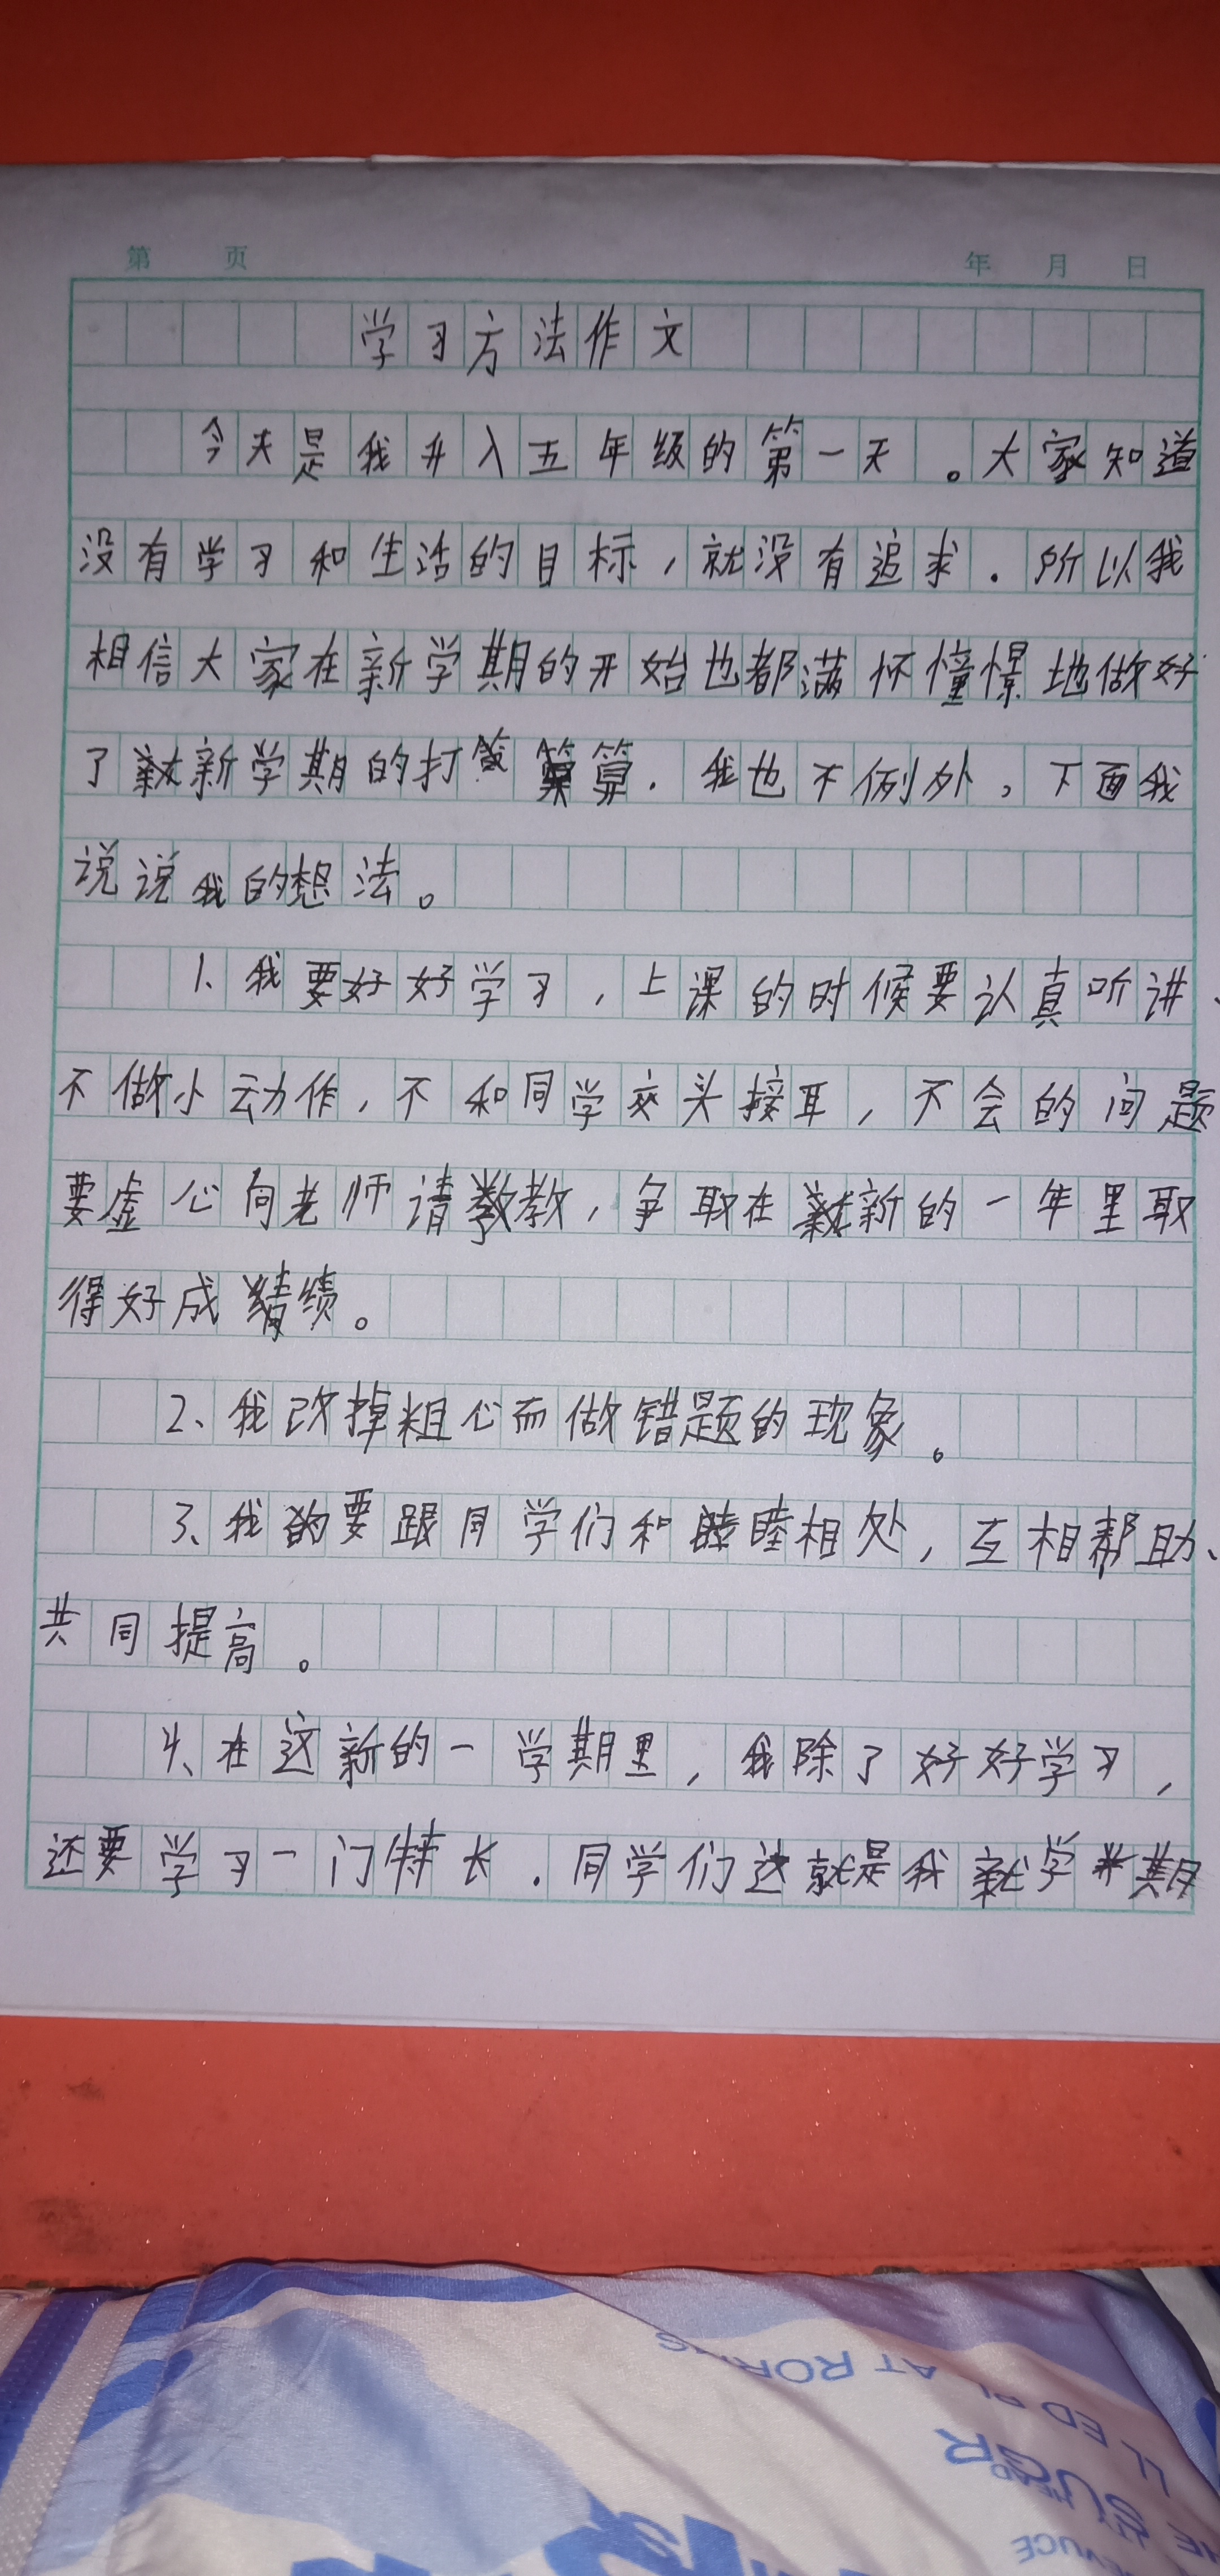 第 页 年 月 日
学习方法作文
今天是我升入五年级的第一天。大家知道
没有学习和生活的目标，就没有追求．所以我
相信大家在新学期的开始也都满怀憧憬地做好
了新学期的打算．我也不例外，下面我
说说我的想法。
1、我要好好学习，上课的时候要认真听讲、
不做小动作，不和同学交头接耳，不会的问题
要虚心向老师请教，争取在新的一年里取
得好成绩。
2、我改掉粗心而做错题的现象。
3、我要跟同学们和睦相处，互相帮助、
共同提高。
4、在这新的一学期里，我除了好好学习，
还要学习一门特长．同学们这就是我就学期
AT ROR